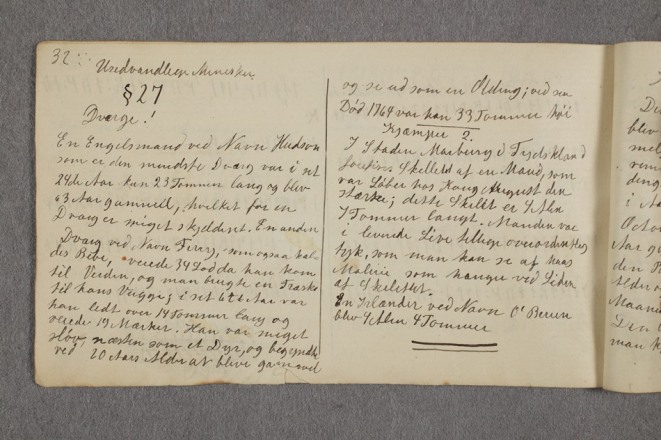 32
Usedvandlige Mennesker
§ 27
Dværge.!
En Engelsmand ved Navn Hudson
som er den mindste Dværg var i sit
24de Aar kun 23 Tommer lang og blev
63 Aar gammel, hvilket for en
Dværg er meget skjeldent. En anden
Dværg ved Navn Ferry, som ogsaa kal-
des Bebe, veiede 34 Lod da han kom
til Verden, og man brugte en Træsko
til hans Vugge; i sit 6te Aar var
han lidt over 14 Tommer lang og
veiede 19 Mærker. Han var meget
sløv, næsten som et Dyr, og begyndte
ved 20 Aars Alder at blive gammel
og se ud som en Olding; ved sin
Død 1764 var han 33 Tommer høi
Kjæmper 2.
I Staden Marburg i Tydskland
Skelett af en Mand, som
var Løber hos Kong August den
stærke; dette Skilet er 4 Alen
7 Tommer langt. Manden var
i levende Live tillige overordentlig
tyk, som man kan se af hans
Malerie som hænger ved Siden
af Skelettet.
En Irlænder ved Navn O' Brien
blev 4 Alen 4 Tommer
De
blev
mel
rem
deng
i Aa
Octo
Aar g
den
Alder
Maane
Den
man k